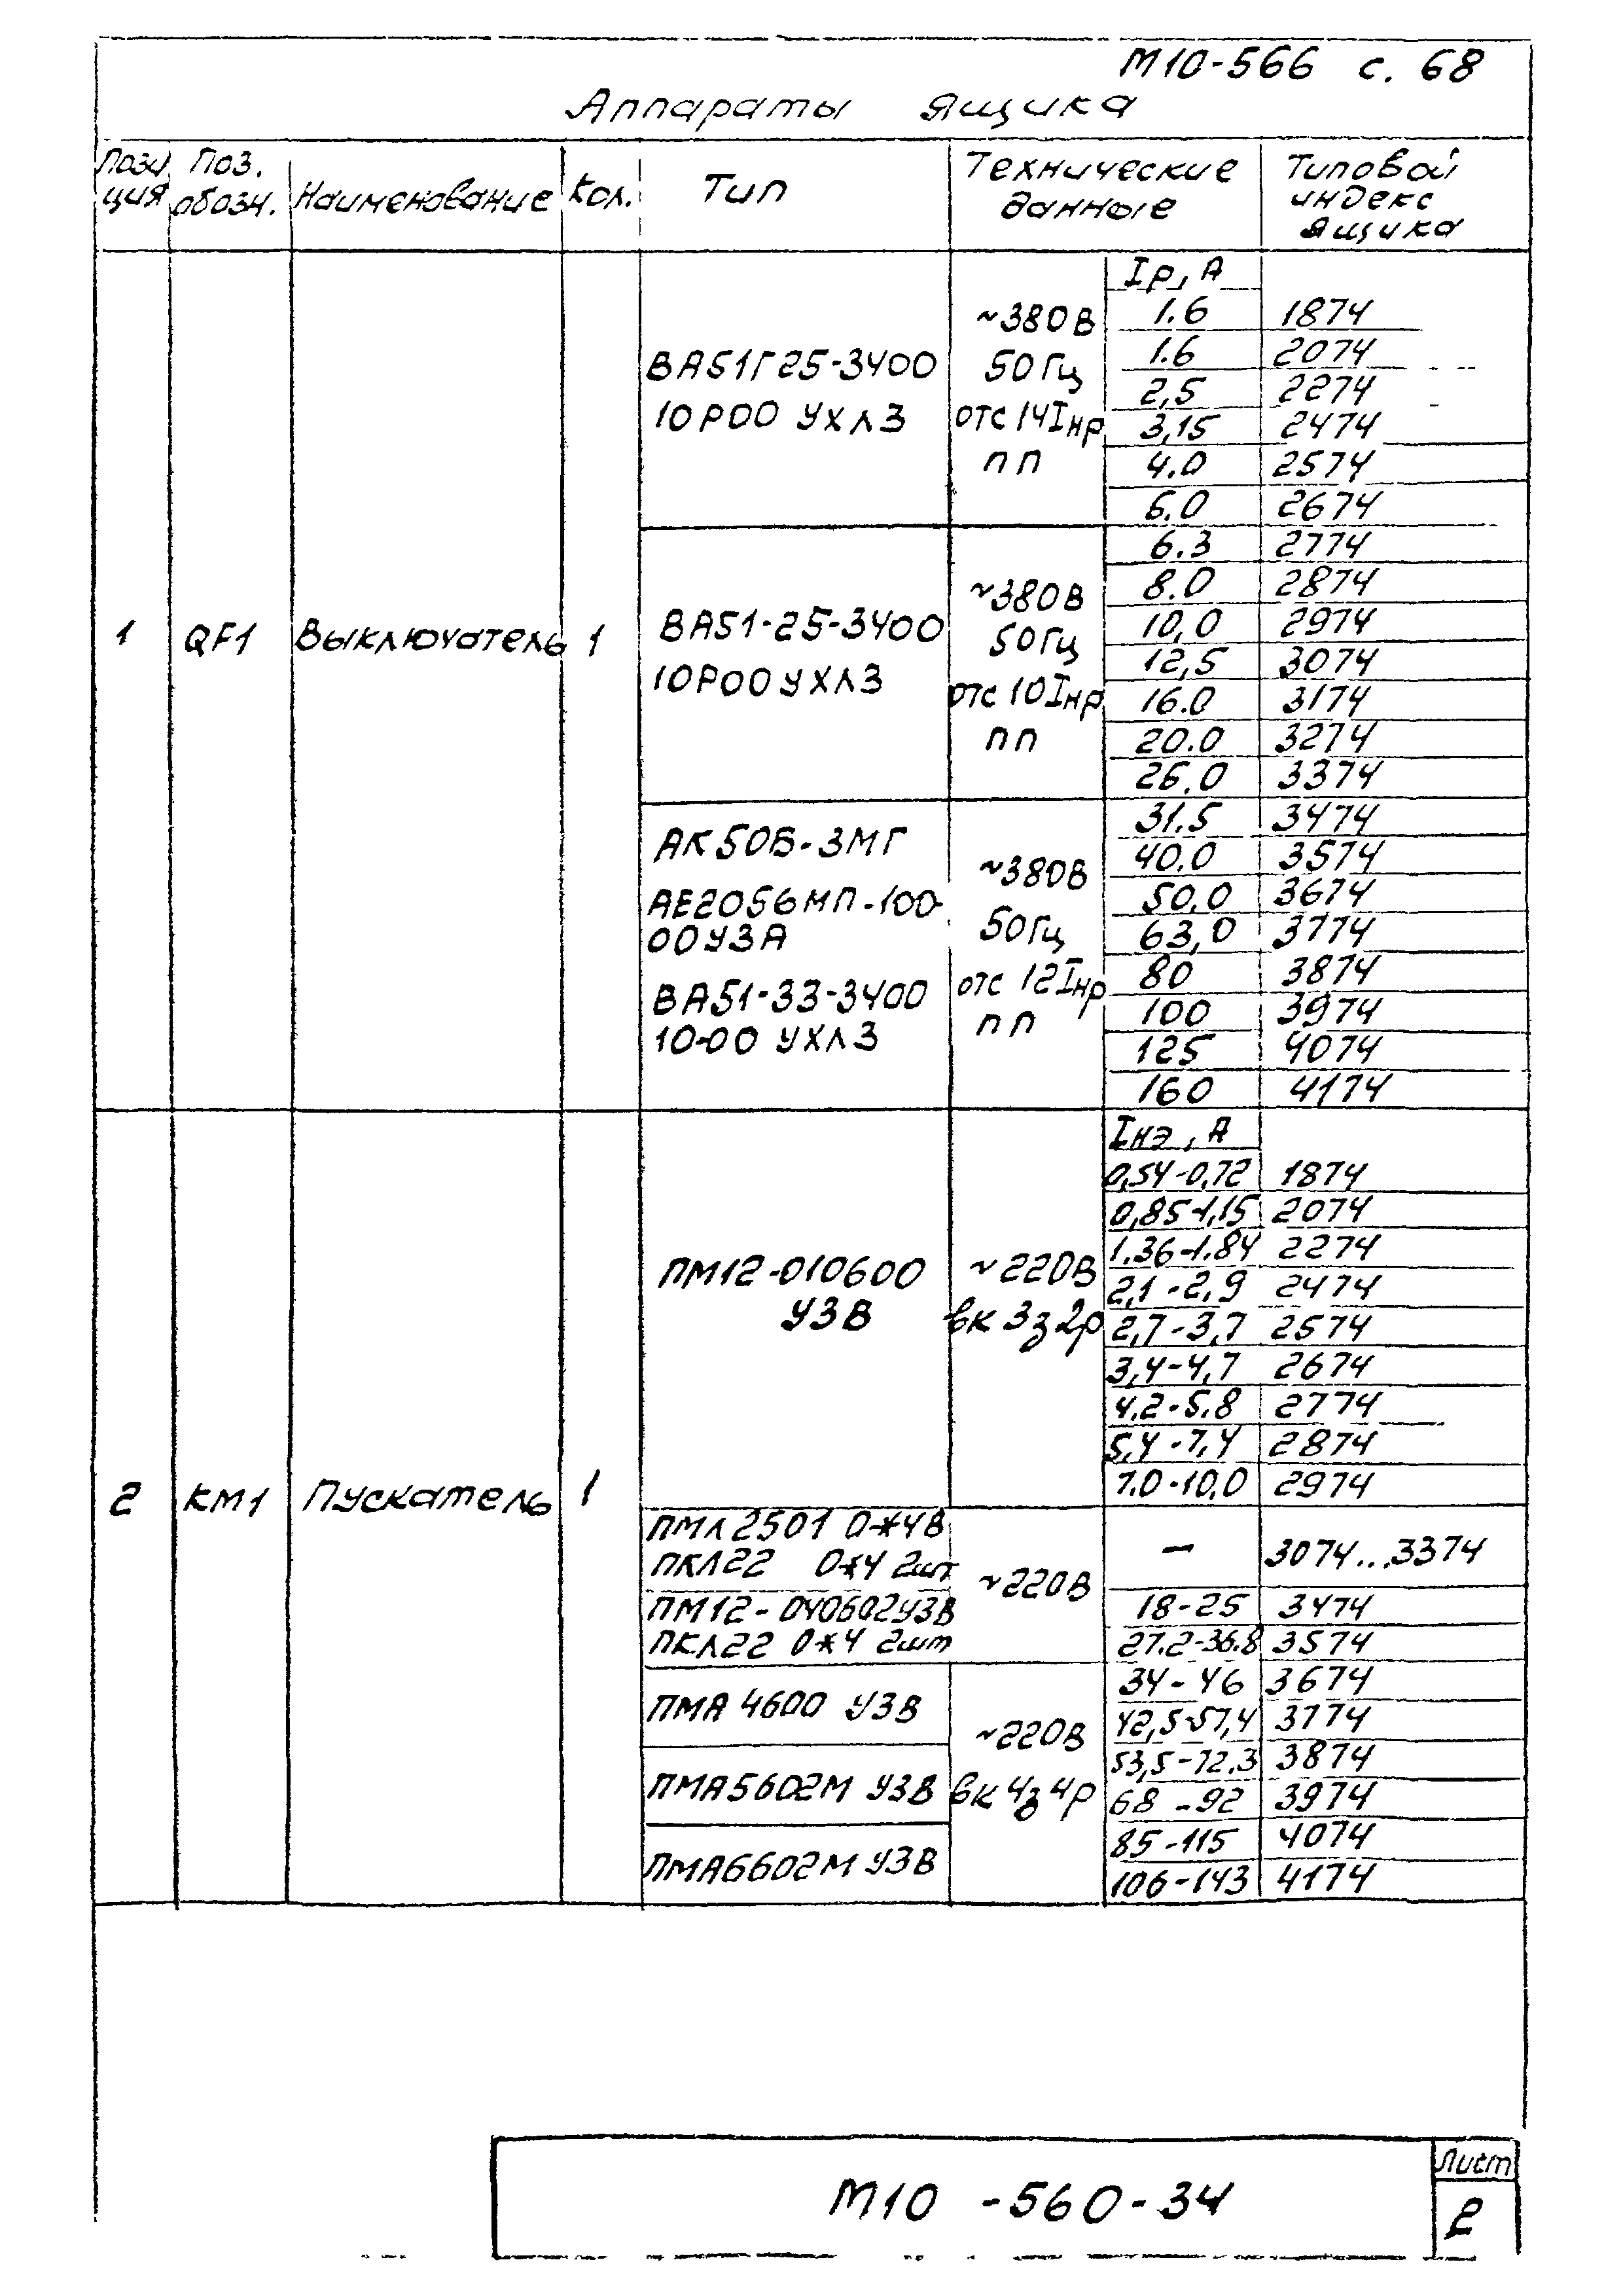 М10-566 с. 68
Аппараты ящика
Пози ция
Поз. обозн.
Наименование
Кол.
Тип
Технические данные
Типовой индекс ящика
1
QF1
Выключатель
1
ВА51Г25-3400
10Р00 УХЛ3
~380В
50Гц
отс 14Iнр
пп
Iр, А
1.6 1874
1.6 2074
2,5 2274
3,15 2474
4.0 2574
6.0 2674
ВА51-25-3400
10Р00УХЛ3
~380В
50Гц
отс 10Iнр
пп
6.3 2774
8.0 2874
10,0 2974
12,5 3074
16.0 3174
20.0 3274
26.0 3374
АК50Б-3МГ
АЕ2056МП-100-
00У3А
ВА51-33-3400
10-00 УХЛ3
~380В
50Гц
отс 12Iнр
пп
31.5 3474
40.0 3574
50,0 3674
63,0 3774
80 3874
100 3974
125 4074
160 4174
2
КМ1
Пускатель
1
ПМ12-010600
У3В
~220В
вк 3з2р
Iнэ, А
0,54-0,72 1874
0,85-1,15 2074
1.36-1.84 2274
2,1-2,9 2474
2,7-3,7 2574
3,4-4,7 2674
4.2-5.8 2774
5,4-7,4 2874
7.0-10,0 2974
ПМЛ2501 0*4В
ПКЛ22 0*4 2шт
~220В
– 3074...3374
ПМ12-040602У3В
ПКЛ22 0*4 2шт
18-25 3474
27.2-36.8 3574
ПМА 4600 У3В
~220В
вк 4з4р
34-46 3674
42,5-57,4 3774
ПМА5602М У3В
53,5-72.3 3874
68-92 3974
ПМА6602М У3В
85-115 4074
106-143 4174
М10-560-34
Лист
2